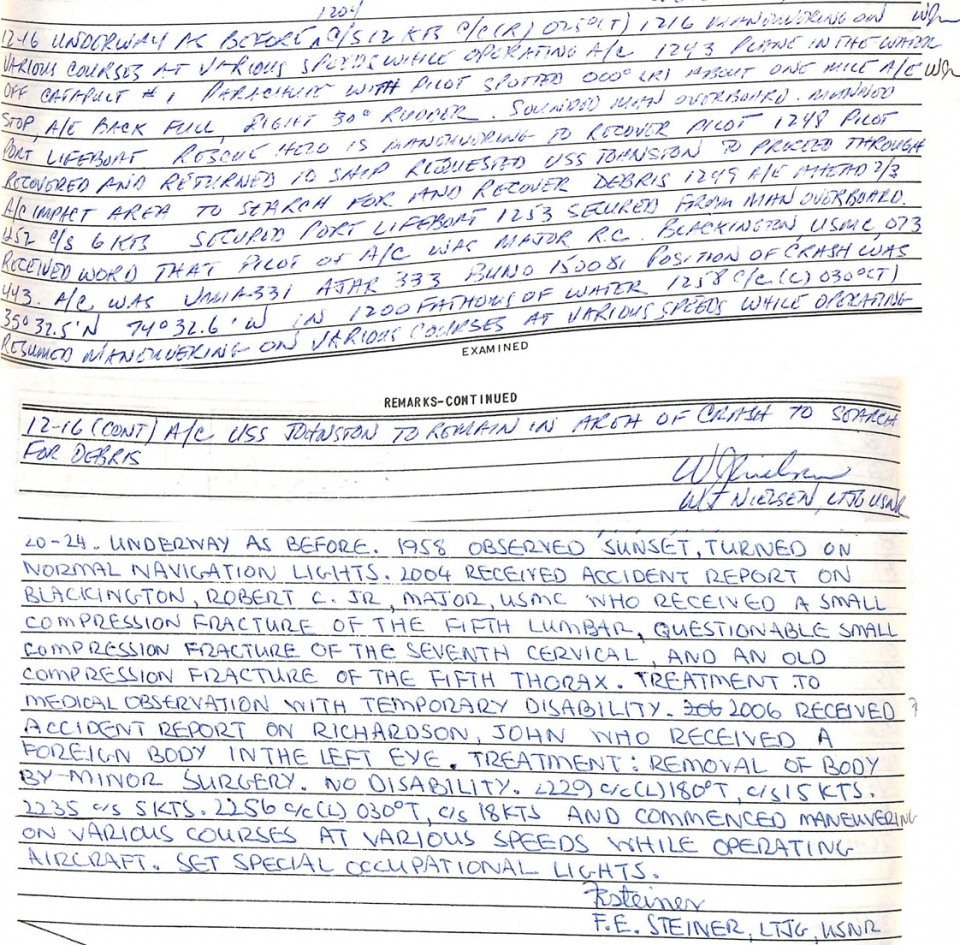 1204
12-16 UNDERWAY AS BEFORE, C/S 12 KTS C/C(R) 025°(T) 1216 MANEUVERING ON
VARIOUS COURSES AT VARIOUS SPEEDS WHILE OPERATING A/C 1243 PLANE IN THE WATER
OFF CATAPULT #1 PARACHUTE WITH PILOT SPOTTED 000° (R) ABOUT ONE MILE A/E
STOP, A/E BACK FULL, RIGHT 30° RUDDER. SOUNDED MAN OVERBOARD. MANNED
PORT LIFEBOAT RESCUE HELO IS MANEUVERING TO RECOVER PILOT 1248 PILOT
RECOVERED AND RETURNED TO SHIP REQUESTED USS JOHNSTON TO PROCEED THROUGH
A/C IMPACT AREA TO SEARCH FOR AND RECOVER DEBRIS 1249 A/E AHEAD 2/3
1252 C/S 6 KTS SECURED PORT LIFEBOAT 1253 SECURED FROM MAN OVERBOARD.
RECEIVED WORD THAT PILOT OF A/C WAS MAJOR R.C. BLACKINGTON USMC, 073
443. A/C WAS VMA-331 AJAR 333 BUNO 150081 POSITION OF CRASH WAS
35° 32.5'N 74° 32.6'W IN 1200 FATHOMS OF WATER 1258 C/C (L) 030°(T)
RESUMED MANEUVERING ON VARIOUS COURSES AT VARIOUS SPEEDS WHILE OPERATING
EXAMINED
REMARKS-CONTINUED
12-16 (CONT) A/C USS JOHNSTON TO REMAIN IN AREA OF CRASH TO SEARCH
FOR DEBRIS
W J Nielsen
W J NIELSEN, LTJG USNR
20-24. UNDERWAY AS BEFORE. 1958 OBSERVED SUNSET, TURNED ON
NORMAL NAVIGATION LIGHTS. 2004 RECEIVED ACCIDENT REPORT ON
BLACKINGTON, ROBERT C. JR, MAJOR, USMC WHO RECEIVED A SMALL
COMPRESSION FRACTURE OF THE FIFTH LUMBAR, QUESTIONABLE SMALL
COMPRESSION FRACTURE OF THE SEVENTH CERVICAL, AND AN OLD
COMPRESSION FRACTURE OF THE FIFTH THORAX. TREATMENT TO
MEDICAL OBSERVATION WITH TEMPORARY DISABILITY. 206 2006 RECEIVED
ACCIDENT REPORT ON RICHARDSON, JOHN WHO RECEIVED A
FOREIGN BODY IN THE LEFT EYE. TREATMENT: REMOVAL OF BODY
BY MINOR SURGERY. NO DISABILITY. 2229 C/C(L) 180°T, C/S 15 KTS.
2235 C/S 5 KTS. 2256 C/C(L) 030°T, C/S 18 KTS AND COMMENCED MANEUVERING
ON VARIOUS COURSES AT VARIOUS SPEEDS WHILE OPERATING
AIRCRAFT. SET SPECIAL OCCUPATIONAL LIGHTS.
F. E. STEINER, LTJG, USNR